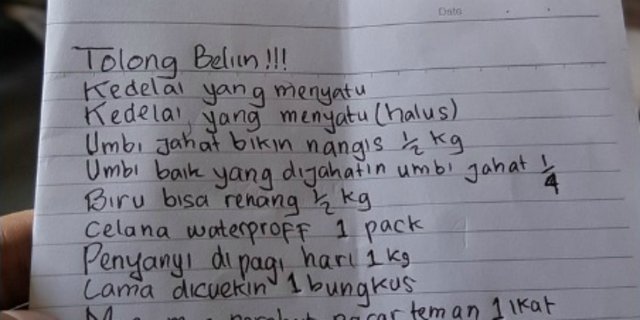 Date
Tolong Beliin!!!
Kedelai yang menyatu
Kedelai yang menyatu (halus)
Umbi jahat bikin nangis 1/2 kg
Umbi baik yang dijahatin umbi jahat 1/4
Biru bisa renang 1/2 kg
Celana waterproff 1 pack
Penyanyi di pagi hari 1 kg
Lama dicuekin 1 bungkus
pacar teman 1 ikat